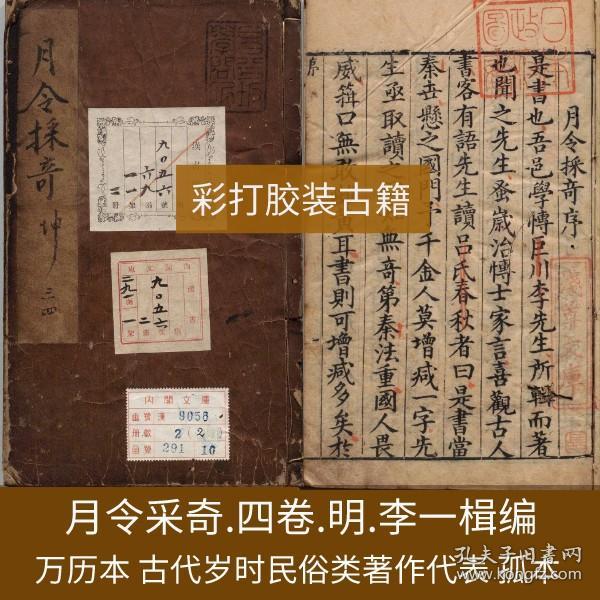 月令採奇 坤
三四
九〇五六
六九
一一
九〇五六
二
一
二九一
內閣文庫
番號 漢 9056
冊數 2 (2)
函號 291 10
月令採奇序
是書也吾邑學博巨川李先生所輯而著
也聞之先生蚤歲治博士家言喜觀古人
書客有語先生讀呂氏春秋者曰是書當
秦世懸之國門予千金人莫增減一字先
生亟取讀之
無奇第秦法重國人畏
威箝口無敢
耳書則可增減多矣於
序
彩打胶装古籍
月令采奇.四卷.明.李一楫编
万历本 古代岁时民俗类著作代表 孤本
孔夫子旧书网